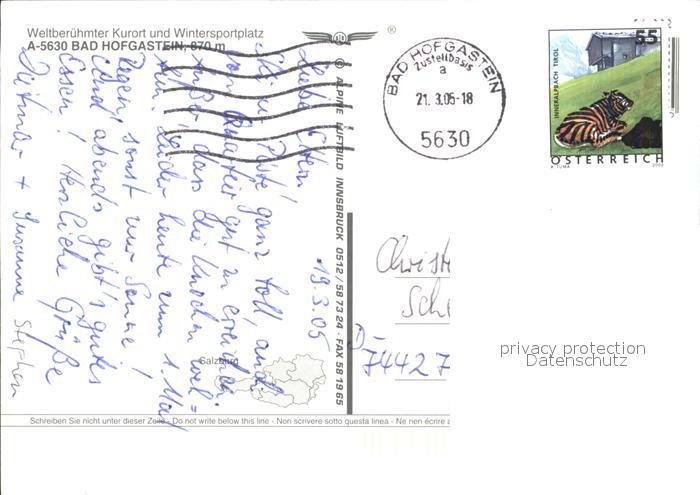 Weltberühmter Kurort und Wintersportplatz
A-5630 BAD HOFGASTEIN, 870 m
®
© ALPINE LUFTBILD INNSBRUCK 0512/587324 · FAX 581965
BAD HOFGASTEIN
Zustellbasis
a
21. 3.05-18
5630
55
INNERALPBACH TIROL
ÖSTERREICH
19.3.05
Liebe Eltern!
Piste ganz toll, auch
vom Quartier gut zu erreichen
so daß die Knochen
Leider heute zum 1. Mal
Regen, sonst nur Sonne!
Und abends gibt's gutes
Essen! Herzliche Grüße
Dietmar + Susanne Stephan
D-
74427
Salzburg
Schreiben Sie nicht unter dieser Zeile - Do not write below this line - Non scrivere sotto questa linea - Ne rien écrire
privacy protection
Datenschutz